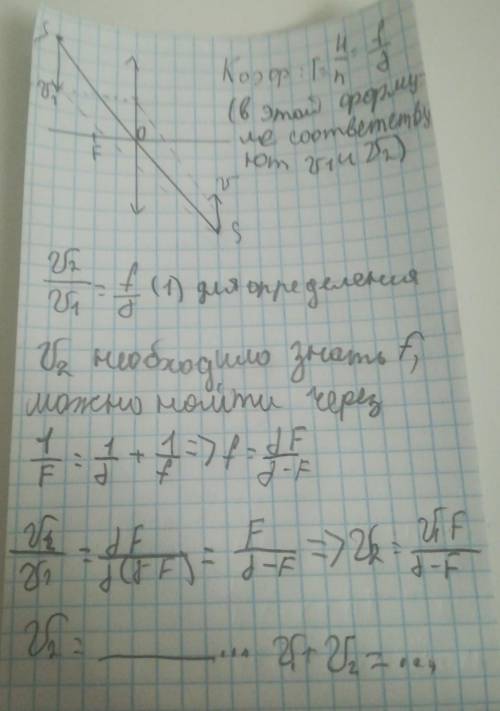 S
υ₁
F
O
υ
S
Коэф: Г = H/h = f/d
(в этой форму-
ле соответству
ют υ₁ и υ₂)
υ₂/υ₁ = f/d (1) для определения
υ₂ необходимо знать f,
можно найти через
1/F = 1/d + 1/f => f = dF/d-F
υ₂/υ₁ = dF/d(d-F) = F/d-F => υ₂ = υ₁F/d-F
υ₂ = ______... υ₁ + υ₂ = ...,